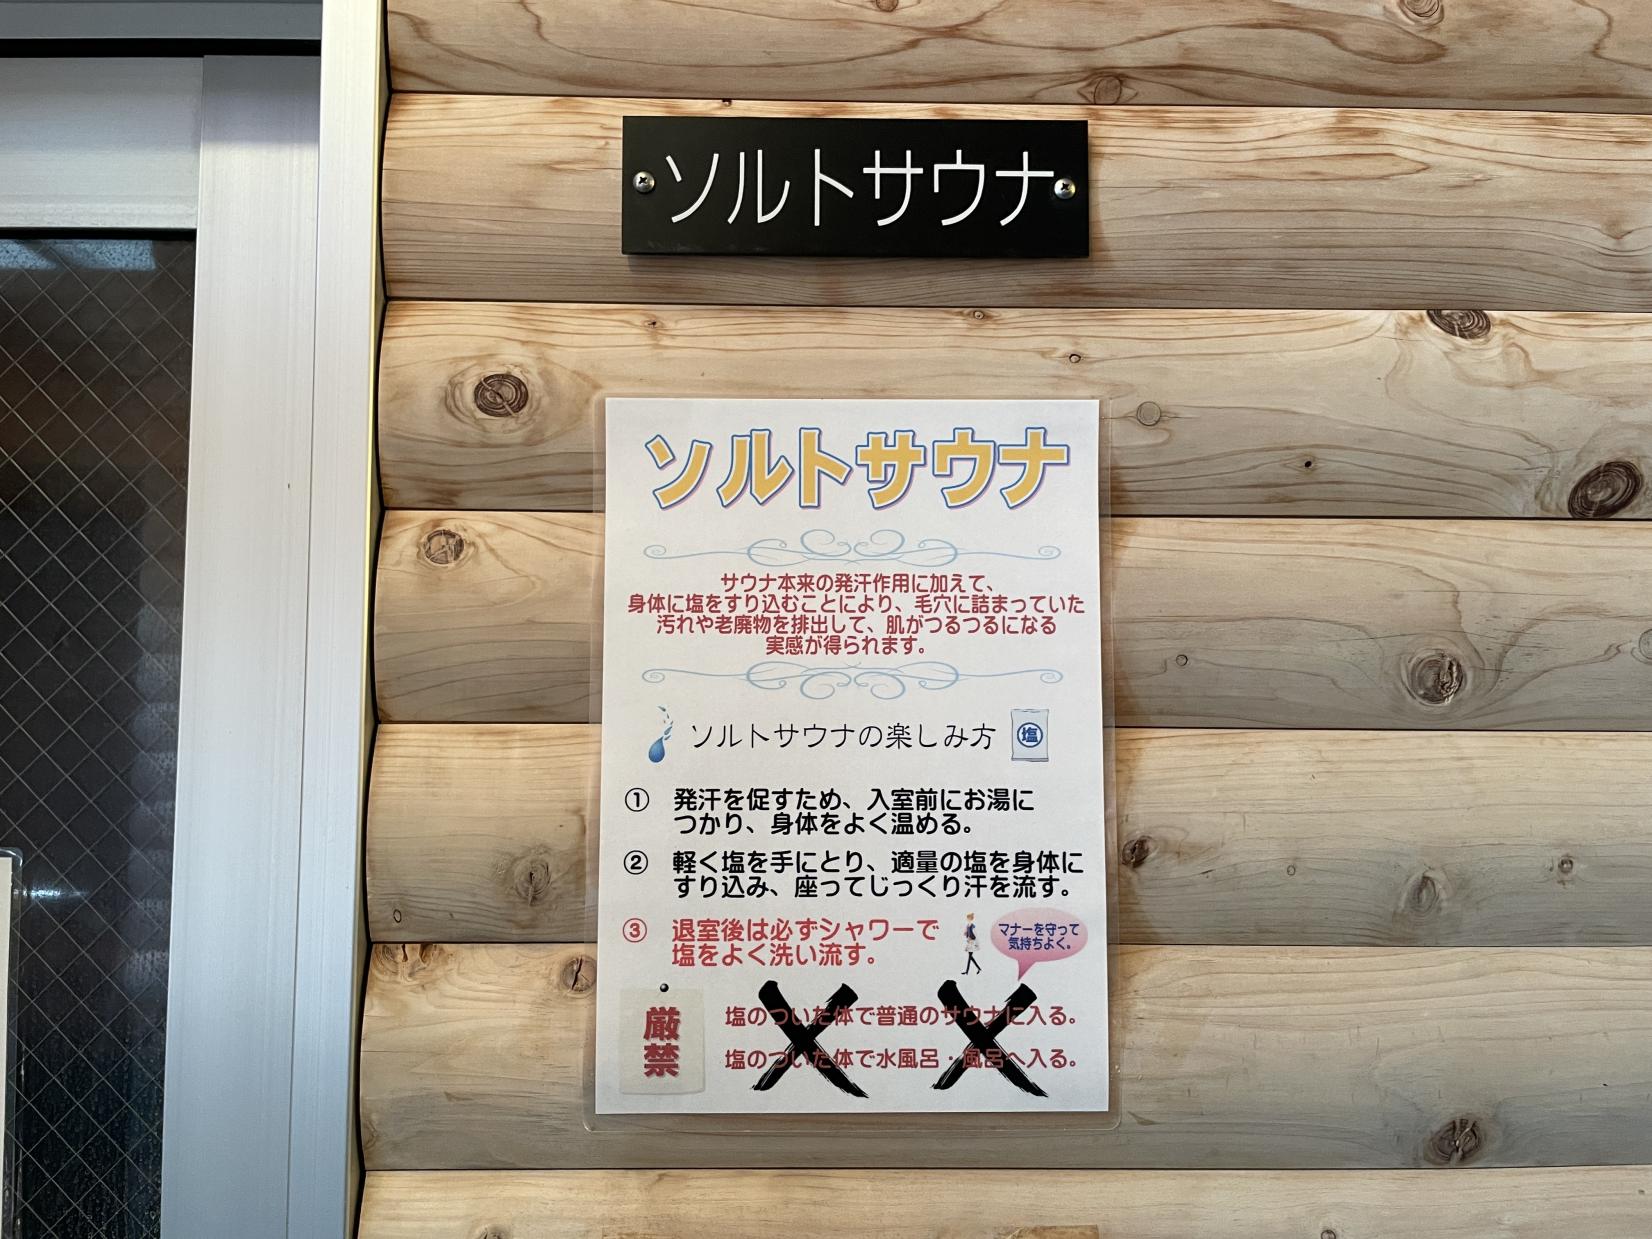 ソルトサウナ
ソルトサウナ
サウナ本来の発汗作用に加えて、
身体に塩をすり込むことにより、毛穴に詰まっていた
汚れや老廃物を排出して、肌がつるつるになる
実感が得られます。
ソルトサウナの楽しみ方
塩
① 発汗を促すため、入室前にお湯に
つかり、身体をよく温める。
② 軽く塩を手にとり、適量の塩を身体に
すり込み、座ってじっくり汗を流す。
③ 退室後は必ずシャワーで
塩をよく洗い流す。
マナーを守って
気持ちよく。
厳禁
塩のついた体で普通のサウナに入る。
塩のついた体で水風呂・風呂へ入る。